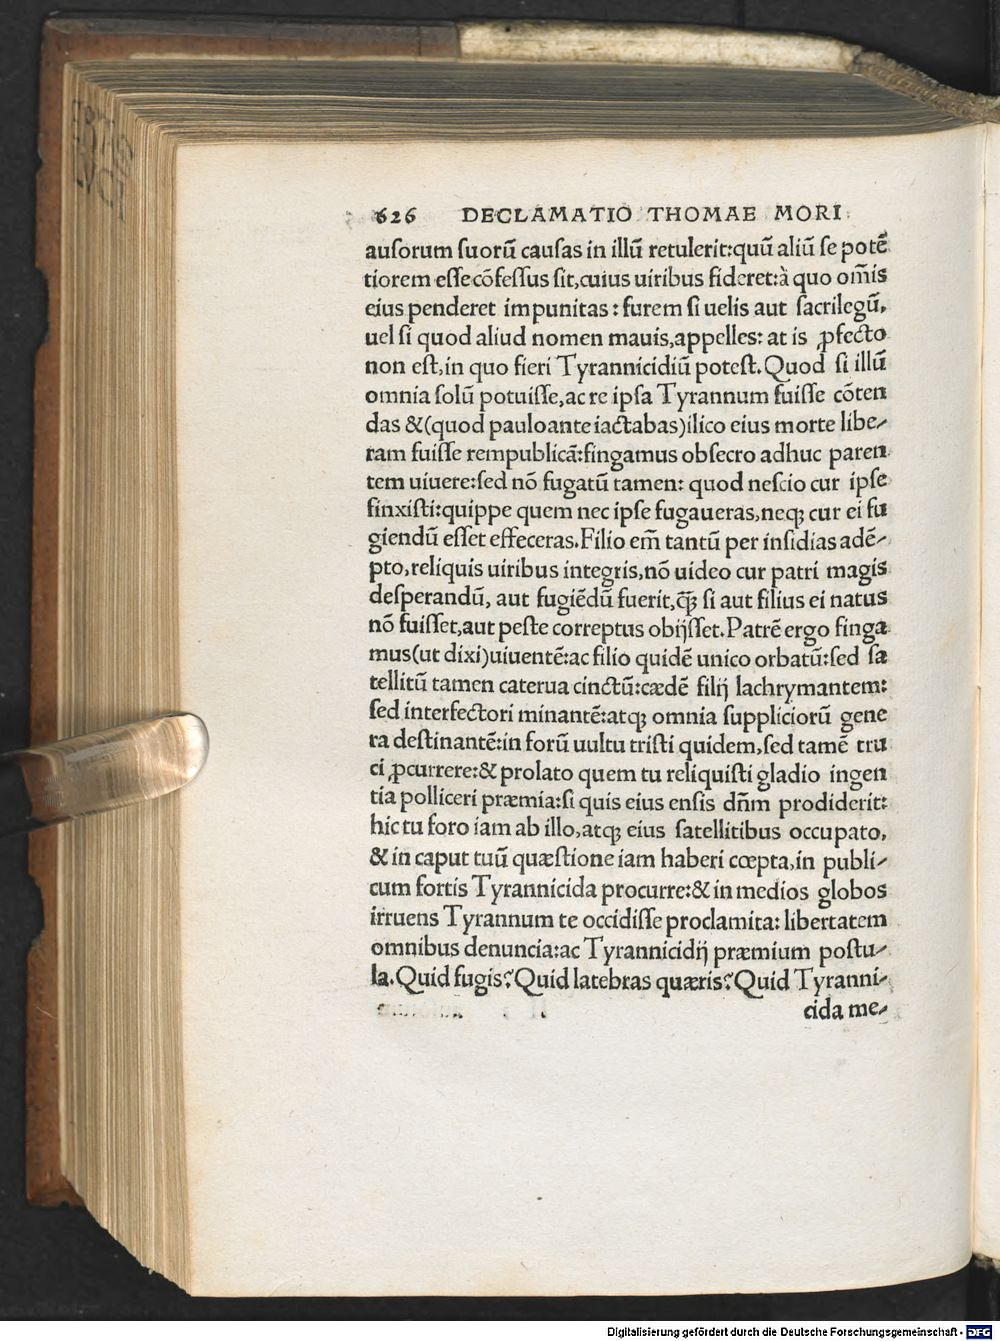 626 DECLAMATIO THOMAE MORI
auſorum ſuorũ cauſas in illũ retulerit:quũ aliũ ſe potẽ
tiorem eſſe cõfeſſus ſit,cuius uiribus fideret:à quo om̃is
eius penderet impunitas: furem ſi uelis aut ſacrilegũ,
uel ſi quod aliud nomen mauis,appelles: at is ꝓfecto
non eſt,in quo fieri Tyrannicidiũ poteſt.Quod ſi illũ
omnia ſolũ potuiſſe,ac re ipſa Tyrannum fuiſſe cõten
das &(quod pauloante iactabas)ilico eius morte libe-
ram fuiſſe rempublicã:fingamus obſecro adhuc paren
tem uiuere:ſed nõ fugatũ tamen: quod neſcio cur ipſe
finxiſti:quippe quem nec ipſe fugaueras,neqꝫ cur ei fu
giendũ eſſet effeceras.Filio em̃ tantũ per inſidias adẽ-
pto,reliquis uiribus integris,nõ uideo cur patri magis
deſperandũ, aut fugiẽdũ fuerit,q̃ꝫ ſi aut filius ei natus
nõ fuiſſet,aut peſte correptus obijſſet.Patrẽ ergo finga
mus(ut dixi)uiuentẽ:ac filio quidẽ unico orbatũ:ſed ſa
tellitũ tamen caterua cinctũ:cædẽ filij lachrymantem:
ſed interfectori minantẽ:atqꝫ omnia ſuppliciorũ gene
ra deſtinantẽ:in forũ uultu triſti quidem,ſed tamẽ tru
ci ꝓcurrere:& prolato quem tu reliquiſti gladio ingen
tia polliceri præmia:ſi quis eius enſis dñm prodiderit:
hic tu foro iam ab illo,atqꝫ eius ſatellitibus occupato,
& in caput tuũ quæſtione iam haberi cœpta,in publi-
cum fortis Tyrannicida procurre:& in medios globos
irruens Tyrannum te occidiſſe proclamita: libertatem
omnibus denuncia:ac Tyrannicidij præmium poſtu-
la.Quid fugis? Quid latebras quæris? Quid Tyranni-
cida me-
Digitalisierung gefördert durch die Deutsche Forschungsgemeinschaft - DFG